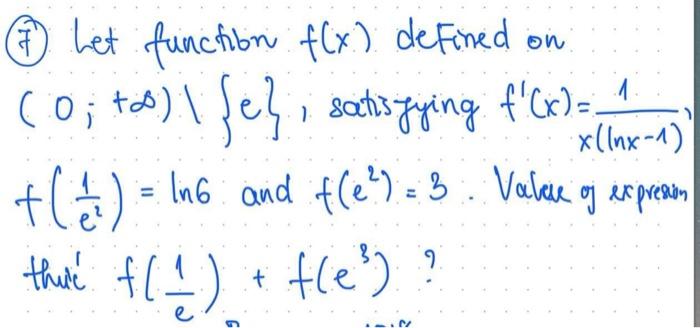 ⑦ Let function f(x) defined on
(0; +∞) \ {e}, satisfying f'(x) = 1/(x(lnx-1)),
f(1/e²) = ln6 and f(e²) = 3. Value of expression
thức f(1/e) + f(e³) ?